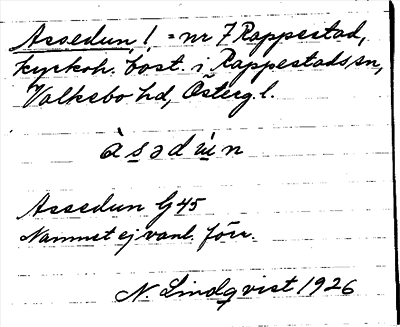 Assedun, ! = nr 7 Rappestad,
kyrkoh. bost. i Rappestads sn,
Valkebo hd, Österg l.
àsədùn
Assedun G 45
Namnet ej vanl. förr.
N. Lindqvist 1926